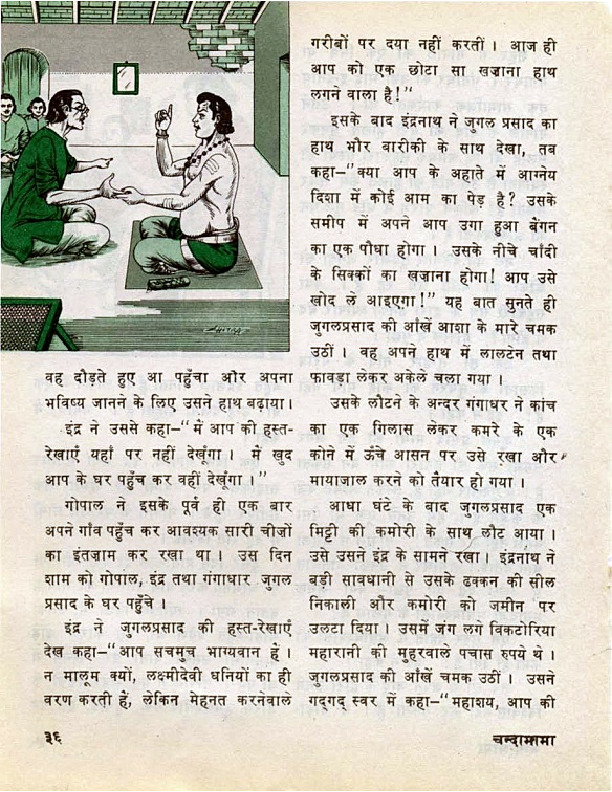 वह दौड़ते हुए आ पहुँचा और अपना
भविष्य जानने के लिए उसने हाथ बढ़ाया।
इंद्र ने उससे कहा–“मैं आप की हस्त-
रेखाएँ यहाँ पर नहीं देखूँगा। में खुद
आप के घर पहुँच कर वहीं देखूँगा।”
गोपाल ने इसके पूर्व ही एक बार
अपने गाँव पहुँच कर आवश्यक सारी चीज़ों
का इंतज़ाम कर रखा था। उस दिन
शाम को गोपाल, इंद्र तथा गंगाधार जुगल
प्रसाद के घर पहुँचे।
इंद्र ने जुगलप्रसाद की हस्त-रेखाएँ
देख कहा–“आप सचमुच भाग्यवान हैं।
न मालूम क्यों, लक्ष्मीदेवी धनियों का ही
वरण करती हैं, लेकिन मेहनत करनेवाले
गरीबों पर दया नहीं करतीं। आज ही
आप को एक छोटा सा खज़ाना हाथ
लगने वाला है!”
इसके बाद इंद्रनाथ ने जुगल प्रसाद का
हाथ भौर बारीकी के साथ देखा, तब
कहा–“क्या आप के अहाते में आग्नेय
दिशा में कोई आम का पेड़ है? उसके
समीप में अपने आप उगा हुआ बैंगन
का एक पौधा होगा। उसके नीचे चांदी
के सिक्कों का खज़ाना होगा! आप उसे
खोद ले आइएगा!” यह बात सुनते ही
जुगलप्रसाद की आँखें आशा के मारे चमक
उठीं। वह अपने हाथ में लालटेन तथा
फावड़ा लेकर अकेले चला गया।
उसके लौटने के अन्दर गंगाधर ने कांच
का एक गिलास लेकर कमरे के एक
कोने में ऊँचे आसन पर उसे रखा और
मायाजाल करने को तैयार हो गया।
आधा घंटे के बाद जुगलप्रसाद एक
मिट्टी की कमोरी के साथ लौट आया।
उसे उसने इंद्र के सामने रखा। इंद्रनाथ ने
बड़ी सावधानी से उसके ढक्कन की सील
निकाली और कमोरी को जमीन पर
उलटा दिया। उसमें जंग लगे विकटोरिया
महारानी की मुहरवाले पचास रुपये थे।
जुगलप्रसाद की आँखें चमक उठीं। उसने
गद्‌गद् स्वर में कहा–“महाशय, आप की
३६
चन्दामामा